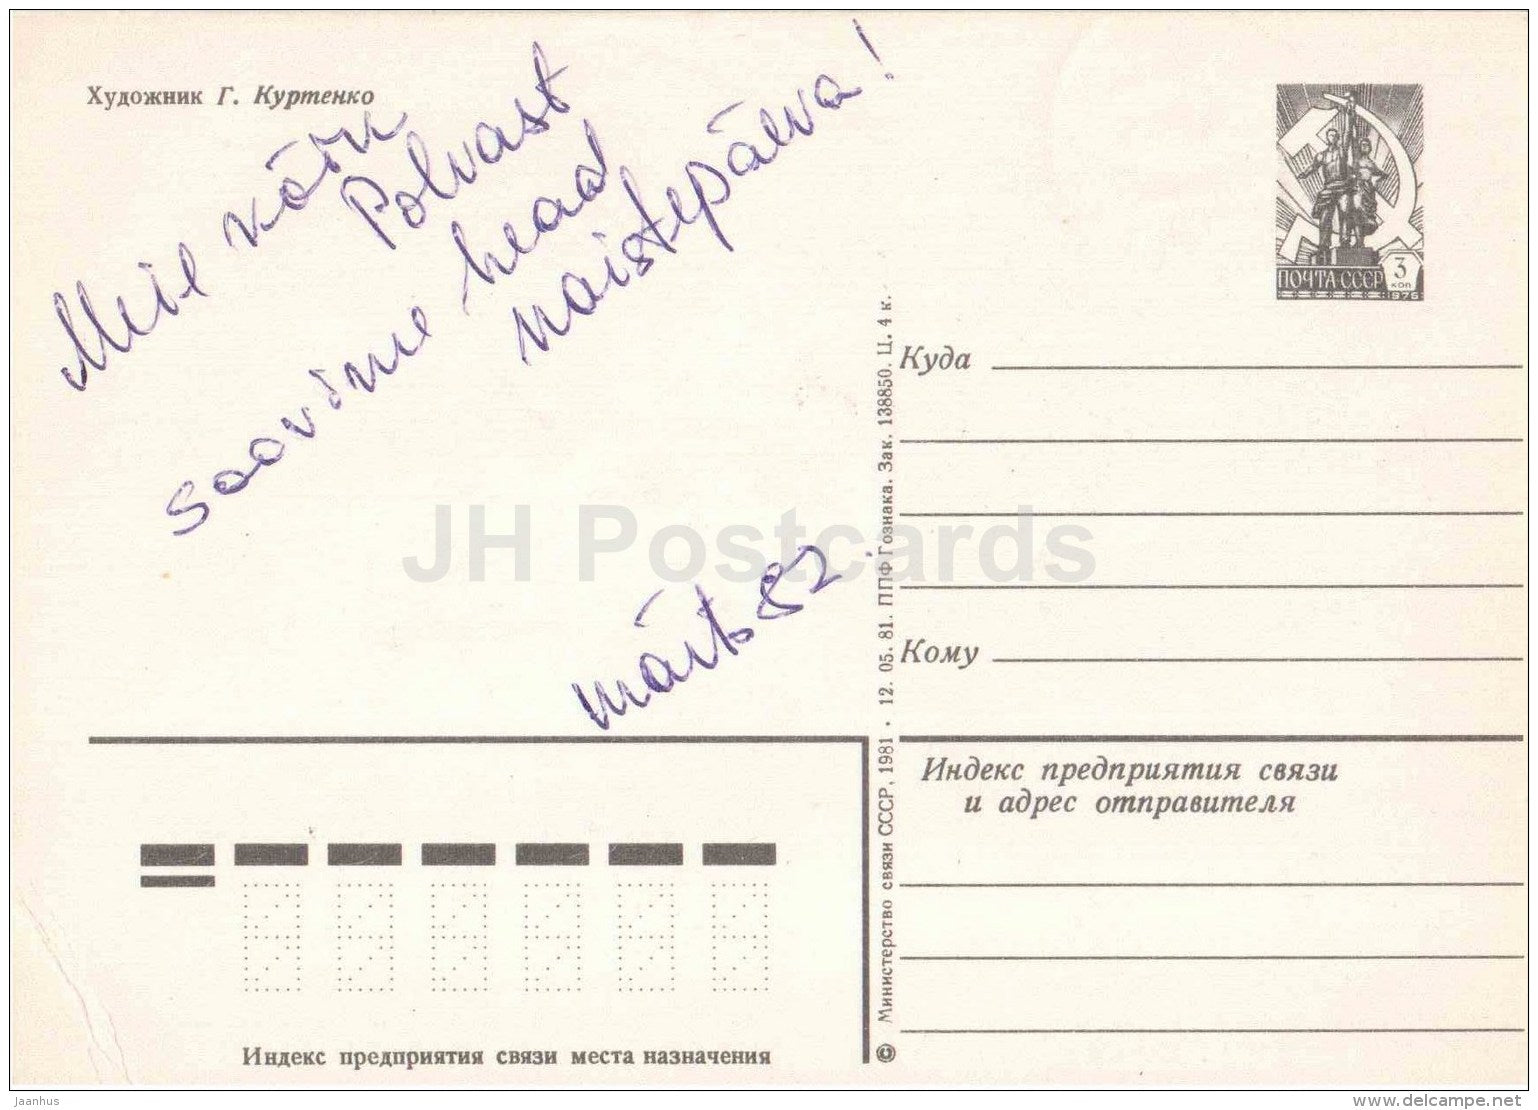 Художник Г. Куртенко
Meie
Polvast
soovime head
naistepäeva!
märts 82
ПОЧТА СССР 3
коп
1976
Куда
Кому
Индекс предприятия связи
и адрес отправителя
Индекс предприятия связи места назначения
© Министерство связи СССР, 1981 · 12. 05. 81. ППФ Гознака. Зак. 138850. Ц. 4 к.
JH Postcards
Jaanhus
www.delcampe.net